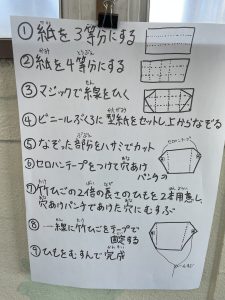 ①紙を3等分にする
②紙を4等分にする
③マジックで線をひく
④ビニールぶくろに型紙をセットし上からなぞる
⑤なぞった部分をハサミでカット
⑥セロハンテープをつけて穴あけ
パンチの
⑦竹ひごの2倍の長さのひもを2本用意し、
穴あけパンチであけた穴にむすぶ
⑧線に竹ひごをテープで
固定する
⑨ひもをむすんで完成